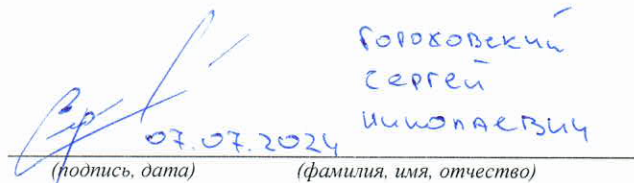 Гороховский
Сергей
Николаевич
07.07.2024
(подпись, дата) (фамилия, имя, отчество)